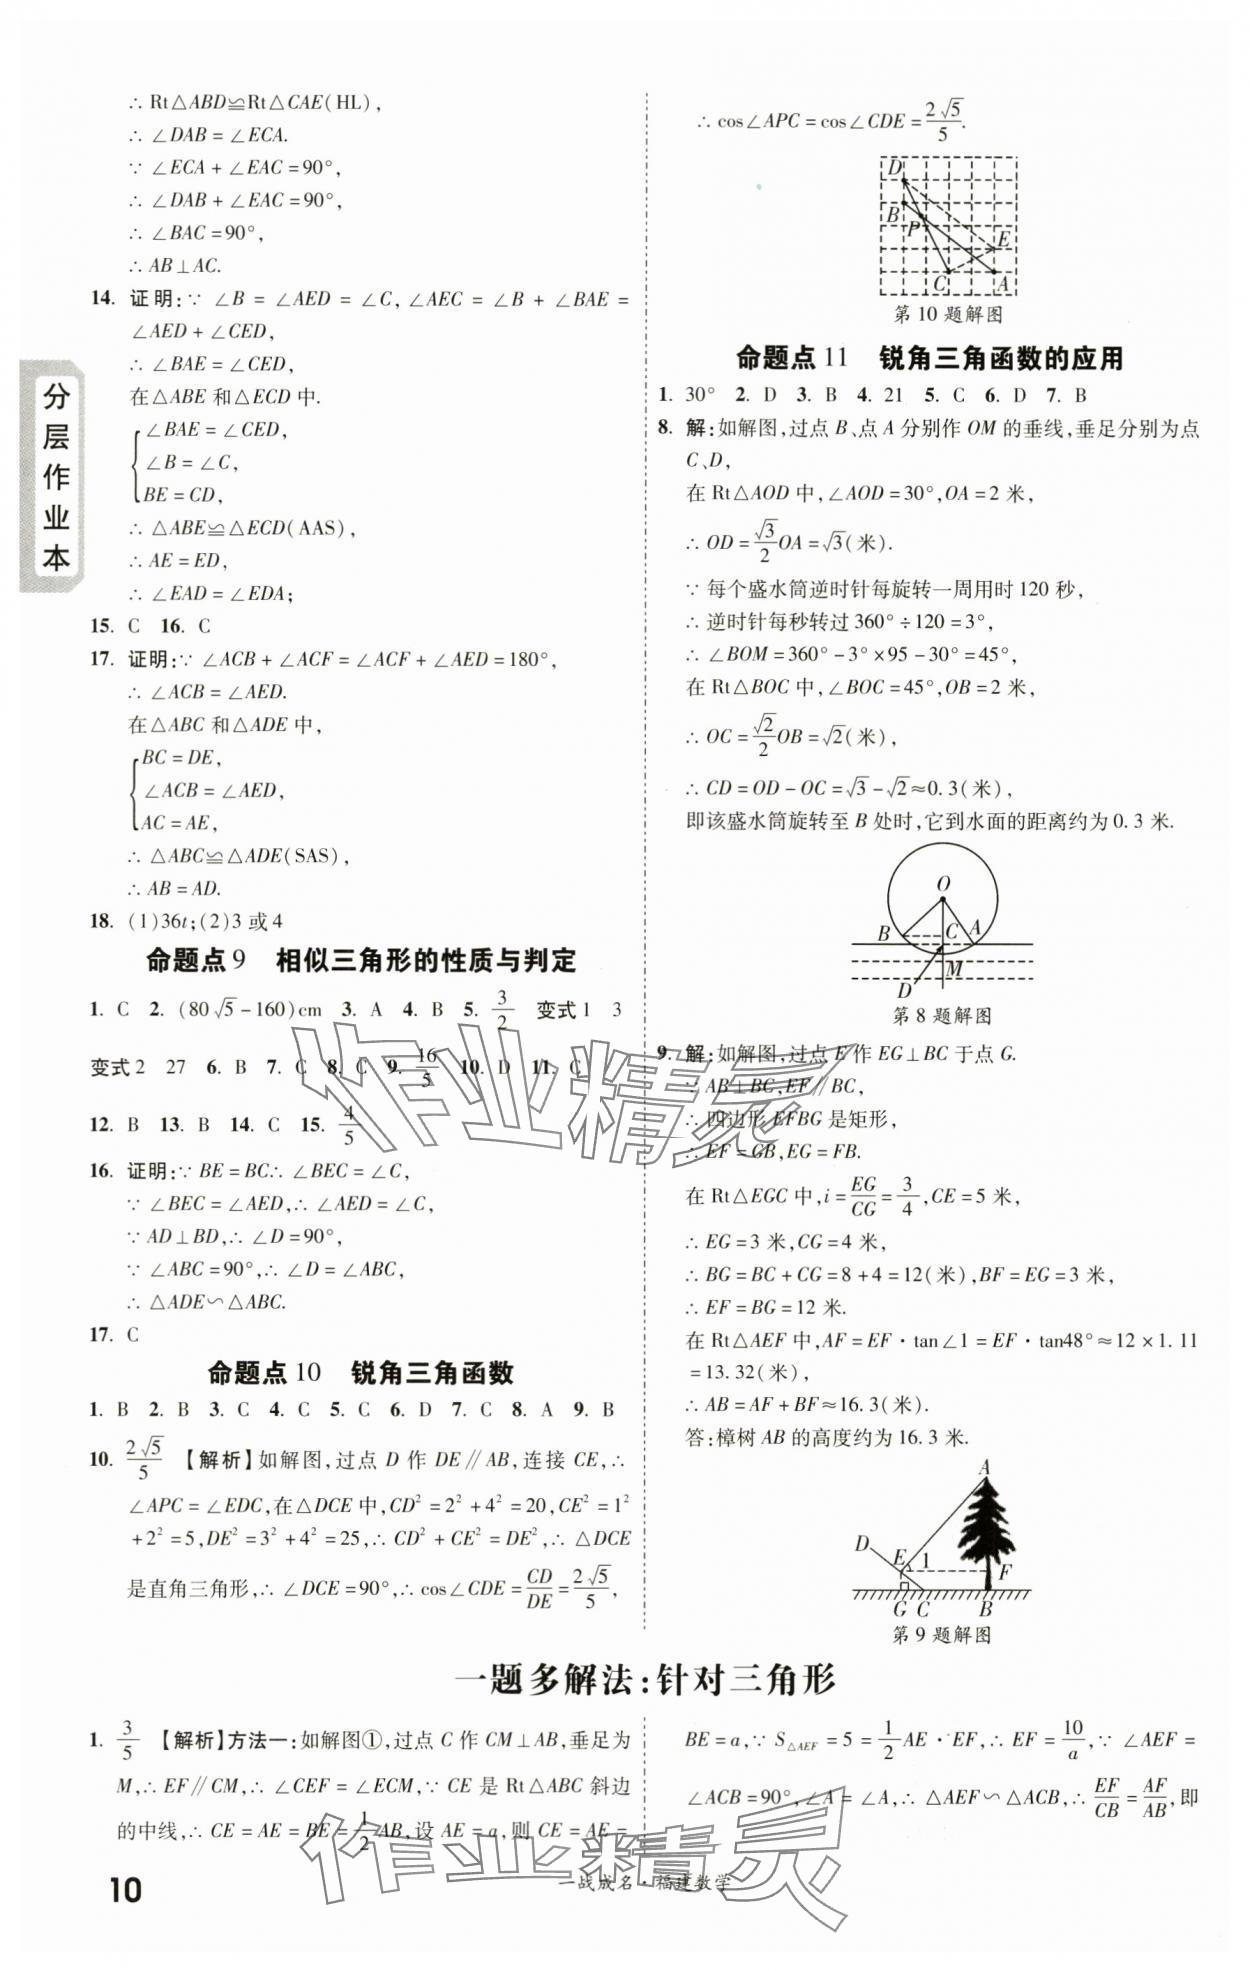 ∴ Rt△ABD≌Rt△CAE(HL),
∴ ∠DAB=∠ECA.
∵ ∠ECA+∠EAC=90°,
∴ ∠DAB+∠EAC=90°,
∴ ∠BAC=90°,
∴ AB⊥AC.
14. 证明:∵ ∠B=∠AED=∠C,∠AEC=∠B+∠BAE=
∠AED+∠CED,
∴ ∠BAE=∠CED,
在△ABE 和△ECD 中.
{∠BAE=∠CED,
∠B=∠C,
BE=CD,
∴ △ABE≌△ECD(AAS),
∴ AE=ED,
∴ ∠EAD=∠EDA;
15. C 16. C
17. 证明:∵ ∠ACB+∠ACF=∠ACF+∠AED=180°,
∴ ∠ACB=∠AED.
在△ABC 和△ADE 中,
{BC=DE,
∠ACB=∠AED,
AC=AE,
∴ △ABC≌△ADE(SAS),
∴ AB=AD.
18. (1)36t;(2)3 或 4
命题点 9 相似三角形的性质与判定
1. C 2. (80√5-160)cm 3. A 4. B 5. 3/2 变式 1 3
变式 2 27 6. B 7. C 8. C 9. 16/5 10. D 11. C
12. B 13. B 14. C 15. 4/5
16. 证明:∵ BE=BC∴ ∠BEC=∠C,
∵ ∠BEC=∠AED,∴ ∠AED=∠C,
∵ AD⊥BD,∴ ∠D=90°,
∵ ∠ABC=90°,∴ ∠D=∠ABC,
∴ △ADE∽△ABC.
17. C
命题点 10 锐角三角函数
1. B 2. B 3. C 4. C 5. C 6. D 7. C 8. A 9. B
10. 2√5/5 【解析】如解图,过点 D 作 DE∥AB,连接 CE,∴
∠APC=∠EDC,在△DCE 中,CD²=2²+4²=20,CE²=1²
+2²=5,DE²=3²+4²=25,∴ CD²+CE²=DE²,∴ △DCE
是直角三角形,∴ ∠DCE=90°,∴ cos∠CDE=CD/DE=2√5/5,
分层作业本
∴ cos∠APC=cos∠CDE=2√5/5.
D
B
P
E
C A
第 10 题解图
命题点 11 锐角三角函数的应用
1. 30° 2. D 3. B 4. 21 5. C 6. D 7. B
8. 解:如解图,过点 B、点 A 分别作 OM 的垂线,垂足分别为点
C、D,
在 Rt△AOD 中,∠AOD=30°,OA=2 米,
∴ OD=√3/2OA=√3(米).
∵ 每个盛水筒逆时针每旋转一周用时 120 秒,
∴ 逆时针每秒转过 360°÷120=3°,
∴ ∠BOM=360°-3°×95-30°=45°,
在 Rt△BOC 中,∠BOC=45°,OB=2 米,
∴ OC=√2/2OB=√2(米),
∴ CD=OD-OC=√3-√2≈0.3(米),
即该盛水筒旋转至 B 处时,它到水面的距离约为 0.3 米.
O
B C A
M
D
第 8 题解图
9. 解:如解图,过点 E 作 EG⊥BC 于点 G.
∵ AB⊥BC,EF∥BC,
∴ 四边形 EFBG 是矩形,
∴ EF=GB,EG=FB.
在 Rt△EGC 中,i=EG/CG=3/4,CE=5 米,
∴ EG=3 米,CG=4 米,
∴ BG=BC+CG=8+4=12(米),BF=EG=3 米,
∴ EF=BG=12 米.
在 Rt△AEF 中,AF=EF·tan∠1=EF·tan48°≈12×1.11
=13.32(米),
∴ AB=AF+BF≈16.3(米).
答:樟树 AB 的高度约为 16.3 米.
A
D
E 1
F
G C B
第 9 题解图
一题多解法:针对三角形
1. 3/5 【解析】方法一:如解图①,过点 C 作 CM⊥AB,垂足为
M,∴ EF∥CM,∴ ∠CEF=∠ECM,∵ CE 是 Rt△ABC 斜边
的中线,∴ CE=AE=BE=1/2AB,设 AE=a,则 CE=AE=
BE=a,∵ S△AEF=5=1/2AE·EF,∴ EF=10/a,∵ ∠AEF=
∠ACB=90°,∠A=∠A,∴ △AEF∽△ACB,∴ EF/CB=AF/AB,即
10
一战成名·福建数学
作业精灵
作业精灵